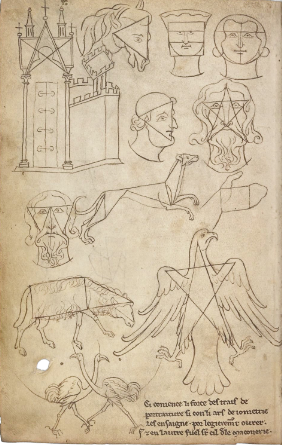 Ci comence li force des trais de
portraiture si con li ars de iometrie
les ensaigne por legierement ovrer
en l'autre fuel sont cil de maconerie